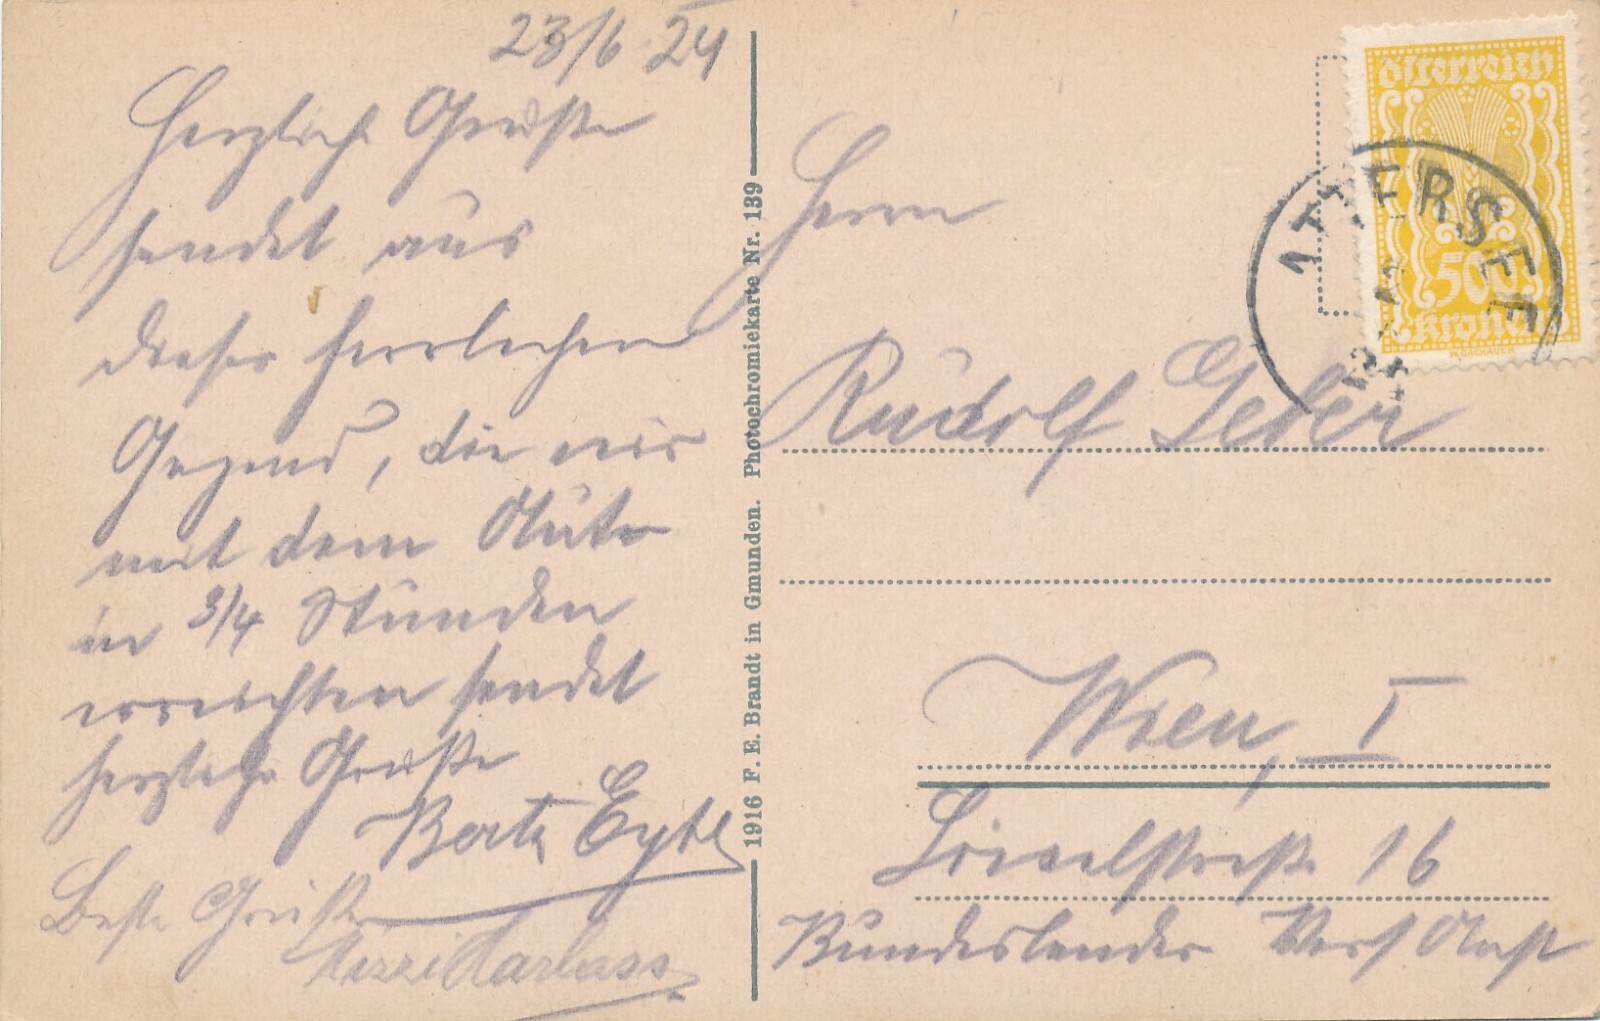 23/6 24
Herzliche Grüße
sendet aus
dieser herrlichen
Gegend, die wir
mit dem Auto
in 3/4 Stunden
erreichten sendet
herzliche Grüße
Berta
Beste Grüße
1916 F. E. Brandt in Gmunden. Photochromiekarte Nr. 139
österreich
500
kronen
ATTERSEE
Herrn
Rudolf Geber
Wien, I
16
Bundesländer Vers Anst